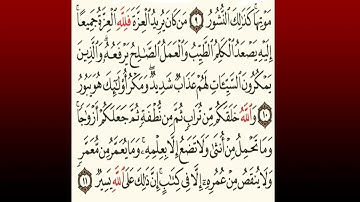 مَوْتِهَا ۚ كَذَٰلِكَ النُّشُورُ ٩ مَن كَانَ يُرِيدُ الْعِزَّةَ فَلِلَّهِ الْعِزَّةُ جَمِيعًا ۚ
إِلَيْهِ يَصْعَدُ الْكَلِمُ الطَّيِّبُ وَالْعَمَلُ الصَّالِحُ يَرْفَعُهُ ۚ وَالَّذِينَ
يَمْكُرُونَ السَّيِّئَاتِ لَهُمْ عَذَابٌ شَدِيدٌ ۖ وَمَكْرُ أُولَٰئِكَ هُوَ يَبُورُ
١٠ وَاللَّهُ خَلَقَكُم مِّن تُرَابٍ ثُمَّ مِن نُّطْفَةٍ ثُمَّ جَعَلَكُمْ أَزْوَاجًا ۚ
وَمَا تَحْمِلُ مِنْ أُنثَىٰ وَلَا تَضَعُ إِلَّا بِعِلْمِهِ ۚ وَمَا يُعَمَّرُ مِن مُّعَمَّرٍ
وَلَا يُنقَصُ مِنْ عُمُرِهِ إِلَّا فِي كِتَابٍ ۚ إِنَّ ذَٰلِكَ عَلَى اللَّهِ يَسِيرٌ ١١